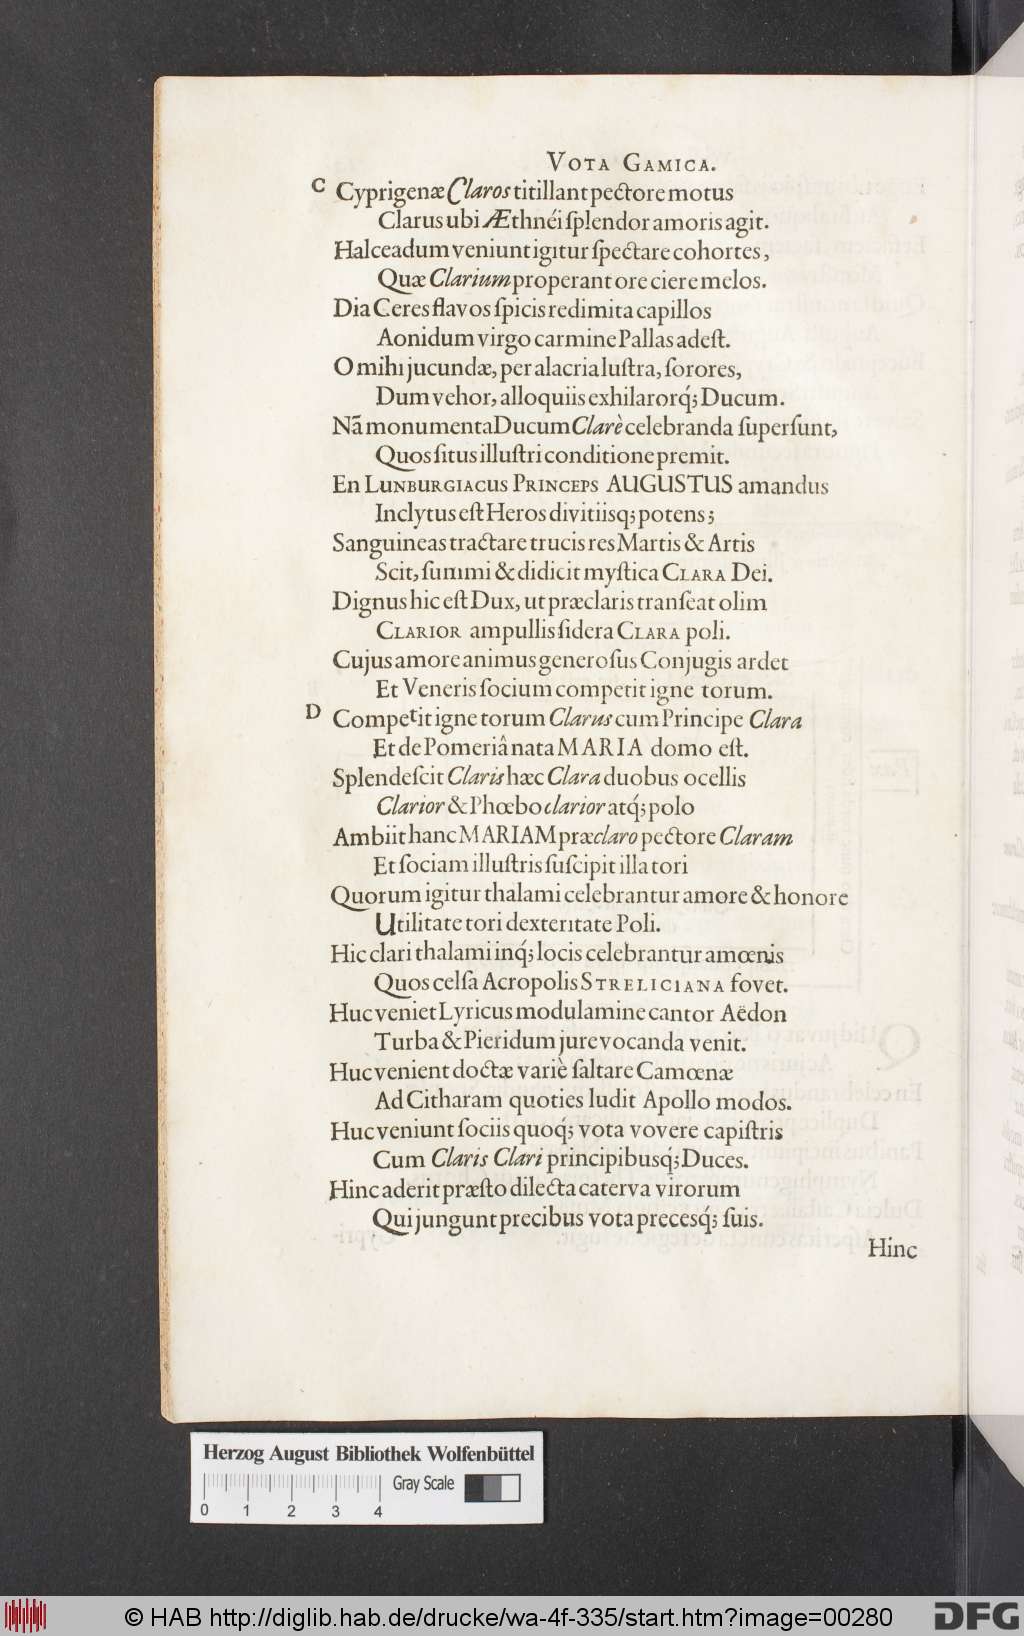 VOTA GAMICA.
C Cyprigenæ Claros titillant pectore motus
Clarus ubi Æthnéi ſplendor amoris agit.
Halceadum veniunt igitur ſpectare cohortes,
Quæ Clarium properant ore ciere melos.
Dia Ceres flavos ſpicis redimita capillos
Aonidum virgo carmine Pallas adeſt.
O mihi jucundæ, per alacria luſtra, ſorores,
Dum vehor, alloquiis exhilarorq́; Ducum.
Nã monumenta Ducum Clarè celebranda ſuperſunt,
Quos ſitus illuſtri conditione premit.
En LUNBURGIACUS PRINCEPS AUGUSTUS amandus
Inclytus eſt Heros divitiisq; potens;
Sanguineas tractare trucis res Martis & Artis
Scit, ſummi & didicit myſtica CLARA Dei.
Dignus hic eſt Dux, ut præclaris tranſeat olim
CLARIOR ampullis ſidera CLARA poli.
Cujus amore animus generoſus Conjugis ardet
Et Veneris ſocium competit igne torum.
D Competit igne torum Clarus cum Principe Clara
Et de Pomeriâ nata MARIA domo eſt.
Splendeſcit Claris hæc Clara duobus ocellis
Clarior & Phœbo clarior atq́; polo
Ambiit hanc MARIAM præclaro pectore Claram
Et ſociam illuſtris ſuſcipit illa tori
Quorum igitur thalami celebrantur amore & honore
Utilitate tori dexteritate Poli.
Hic clari thalami inq́; locis celebrantur amœnis
Quos celſa Acropolis STRELICIANA fovet.
Huc veniet Lyricus modulamine cantor Aëdon
Turba & Pieridum jure vocanda venit.
Huc venient doctæ variè ſaltare Camœnæ
Ad Citharam quoties ludit Apollo modos.
Huc veniunt ſociis quoq́; vota vovere capiſtris
Cum Claris Clari principibusq́; Duces.
Hinc aderit præſto dilecta caterva virorum
Qui jungunt precibus vota precesq́; ſuis.
Hinc
Herzog August Bibliothek Wolfenbüttel
Gray Scale
0 1 2 3 4
© HAB http://diglib.hab.de/drucke/wa-4f-335/start.htm?image=00280
DFG